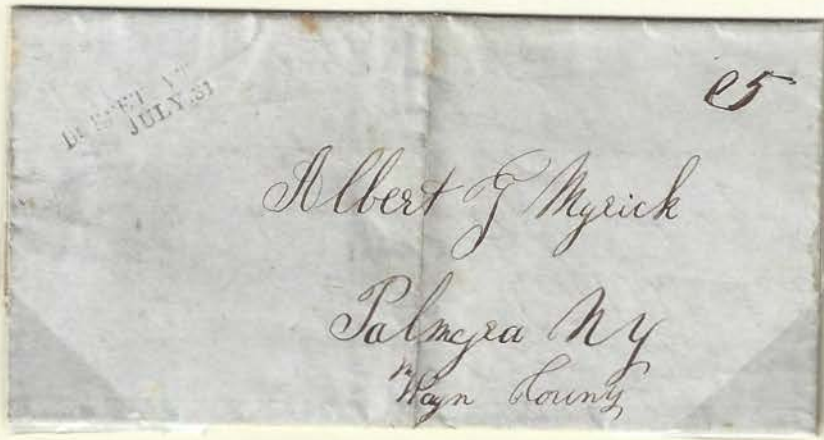 DORSET VT
JULY.31
5
Albert G Myrick
Palmyra NY
Wayn Couny